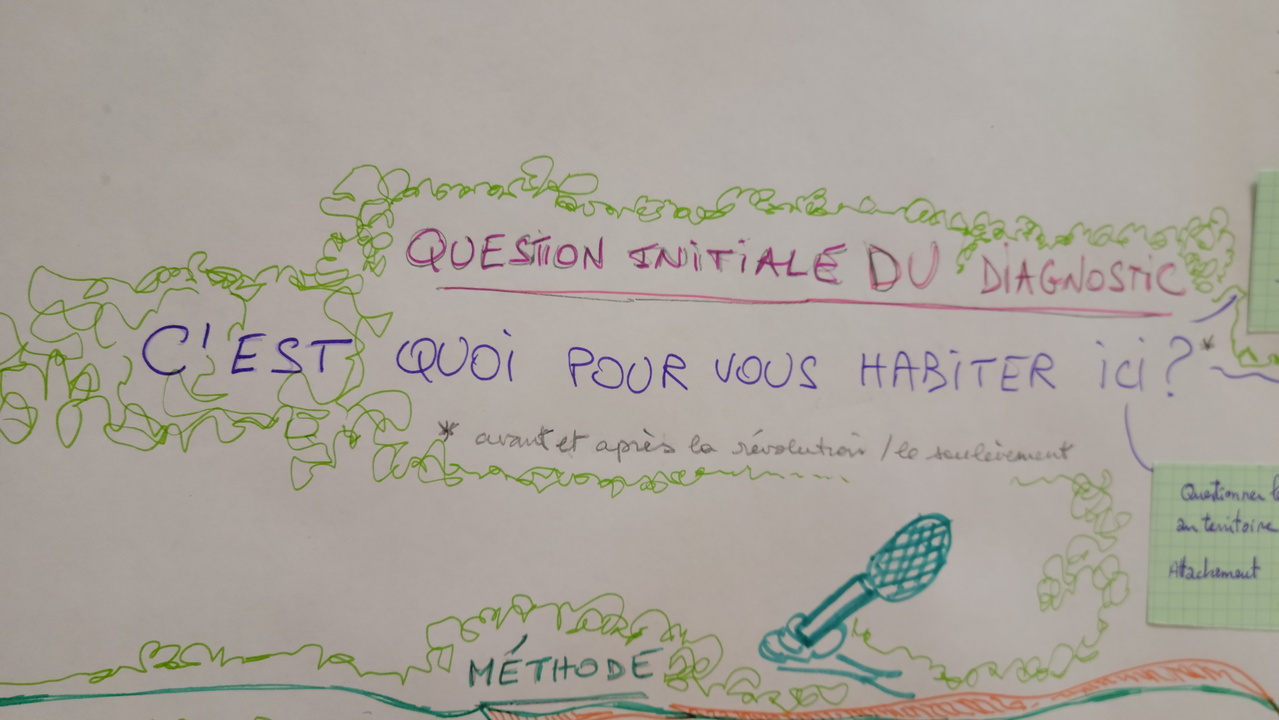 QUESTION INITIALE DU DIAGNOSTIC
C'EST QUOI POUR VOUS HABITER ici ?*
* avant et après la révolution / le soulèvement
Questionner
au territoire
Attachement
MÉTHODE